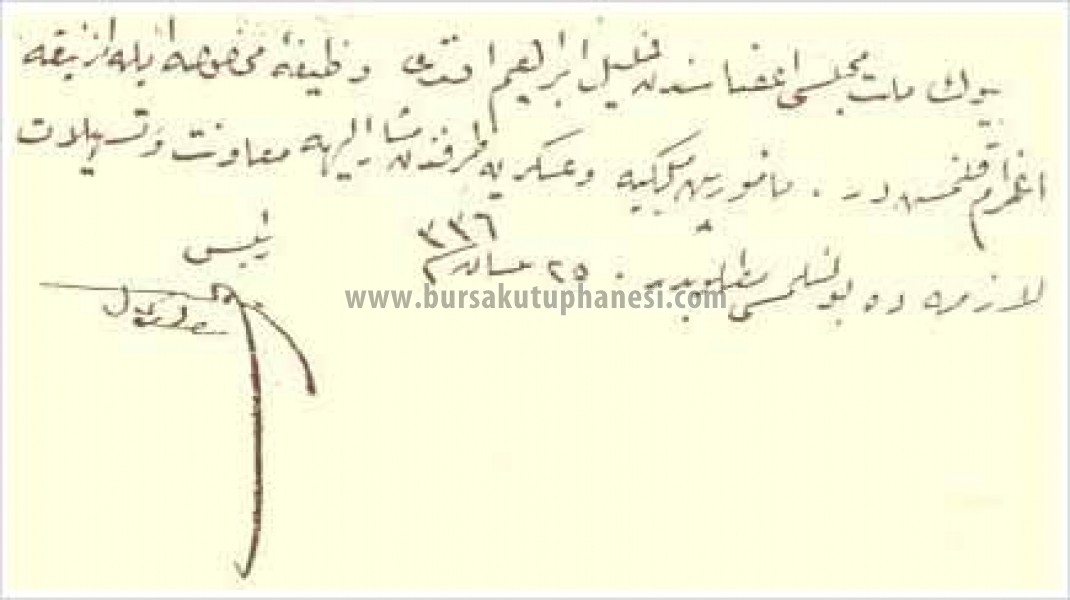 بیوك ملت مجلسی اعضاسندن خلیل ابراهیم افندی وظیفهٔ مخصوصه ایله ازنیقه
اعزام قلنمش در . مأمورین ملكیه وعسكریه طرفندن مشار الیهه معاونت وتسهیلات
لازمه ده بولنلمسی مطلوبدر . ٢٥ نیسان ٣٣٦
رئیس
www.bursakutuphanesi.com
مصطفی كمال